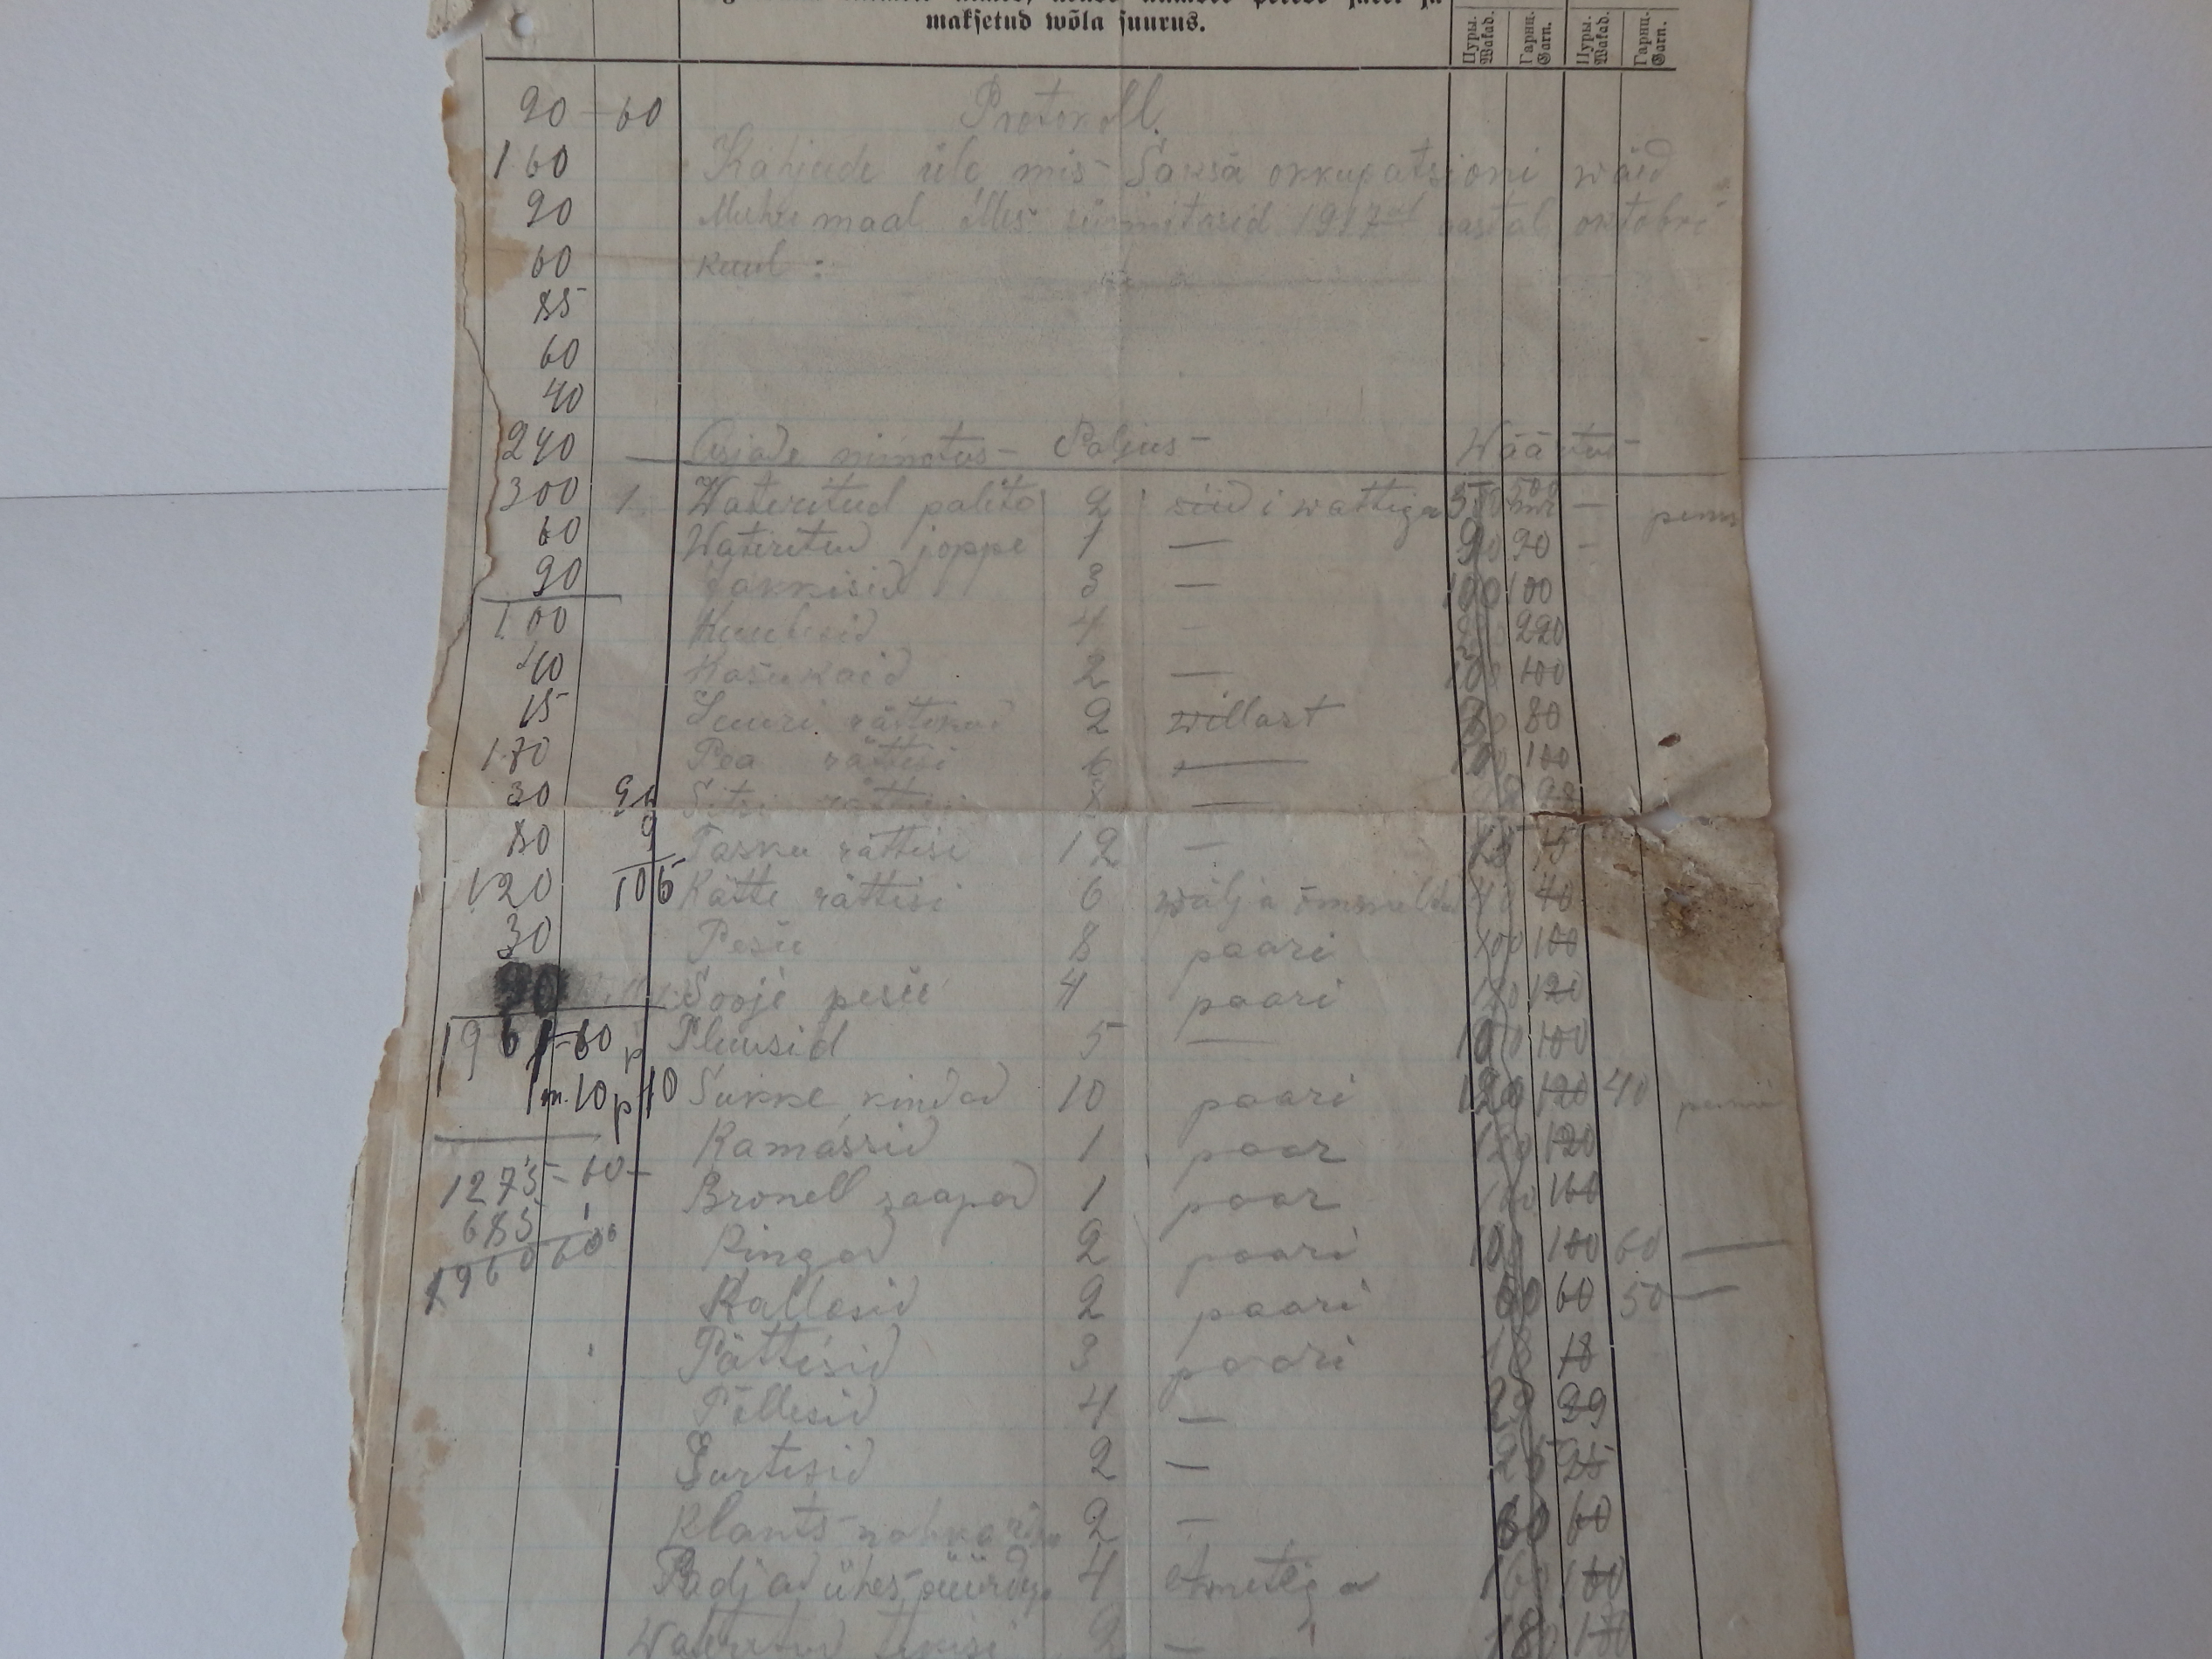 maksetud wõla suurus.
Пуры. Wakad. Гарнц. Garn. Пуры. Wakad. Гарнц. Garn.
90 - 60 Protokoll.
160 Kahjude üle mis Saksa okkupatsioni wäed
90 Muhu maal olles sünnitasid 1917 aastal oktobri
60 kuul :
85
60
40
240 Asjade nimetus Paljus Wäärtus
300 1. Wateritud palito 2 siidi wattiga 500 —
60 Wateritud joppe 1 — 90 90 -
90 Jakkisid 3 — 100 100
100 Kuubesid 4 220
40 Kasukaid 2 — 100 100
15 Suuri rättikud 2 willast 80 80
170 Pea rättisi 6 — 100 100
30 96 Sitsi rättisi 8 — 28
80 9 Tasku rättisi 12 — 15 15
120 105 Kätte rättisi 6 wälja õmmeldud 40 40
30 Pesu 8 paari 100 100
90 Sooje pesu 4 paari 120 120
1961-60 p Pluusid 5 — 100 100
1 m. 10 p 10 Sukke, kindad 10 paari 120 120 40
Kamassid 1 paar 120 120
1275-60- Bronell saapad 1 paar 160 160
685 1 Kingad 2 paari 100 100 60 —
1960 60 Kallosid 2 paari 60 60 50 —
Pättisid 3 paari 18 18
Põllesid 4 — 29 29
Surtisid 2 — 25 25
Klants 2 — 60 60
Padjad ühes püürdega 4 160 160
Wateritud tekisi 2 — 180 180